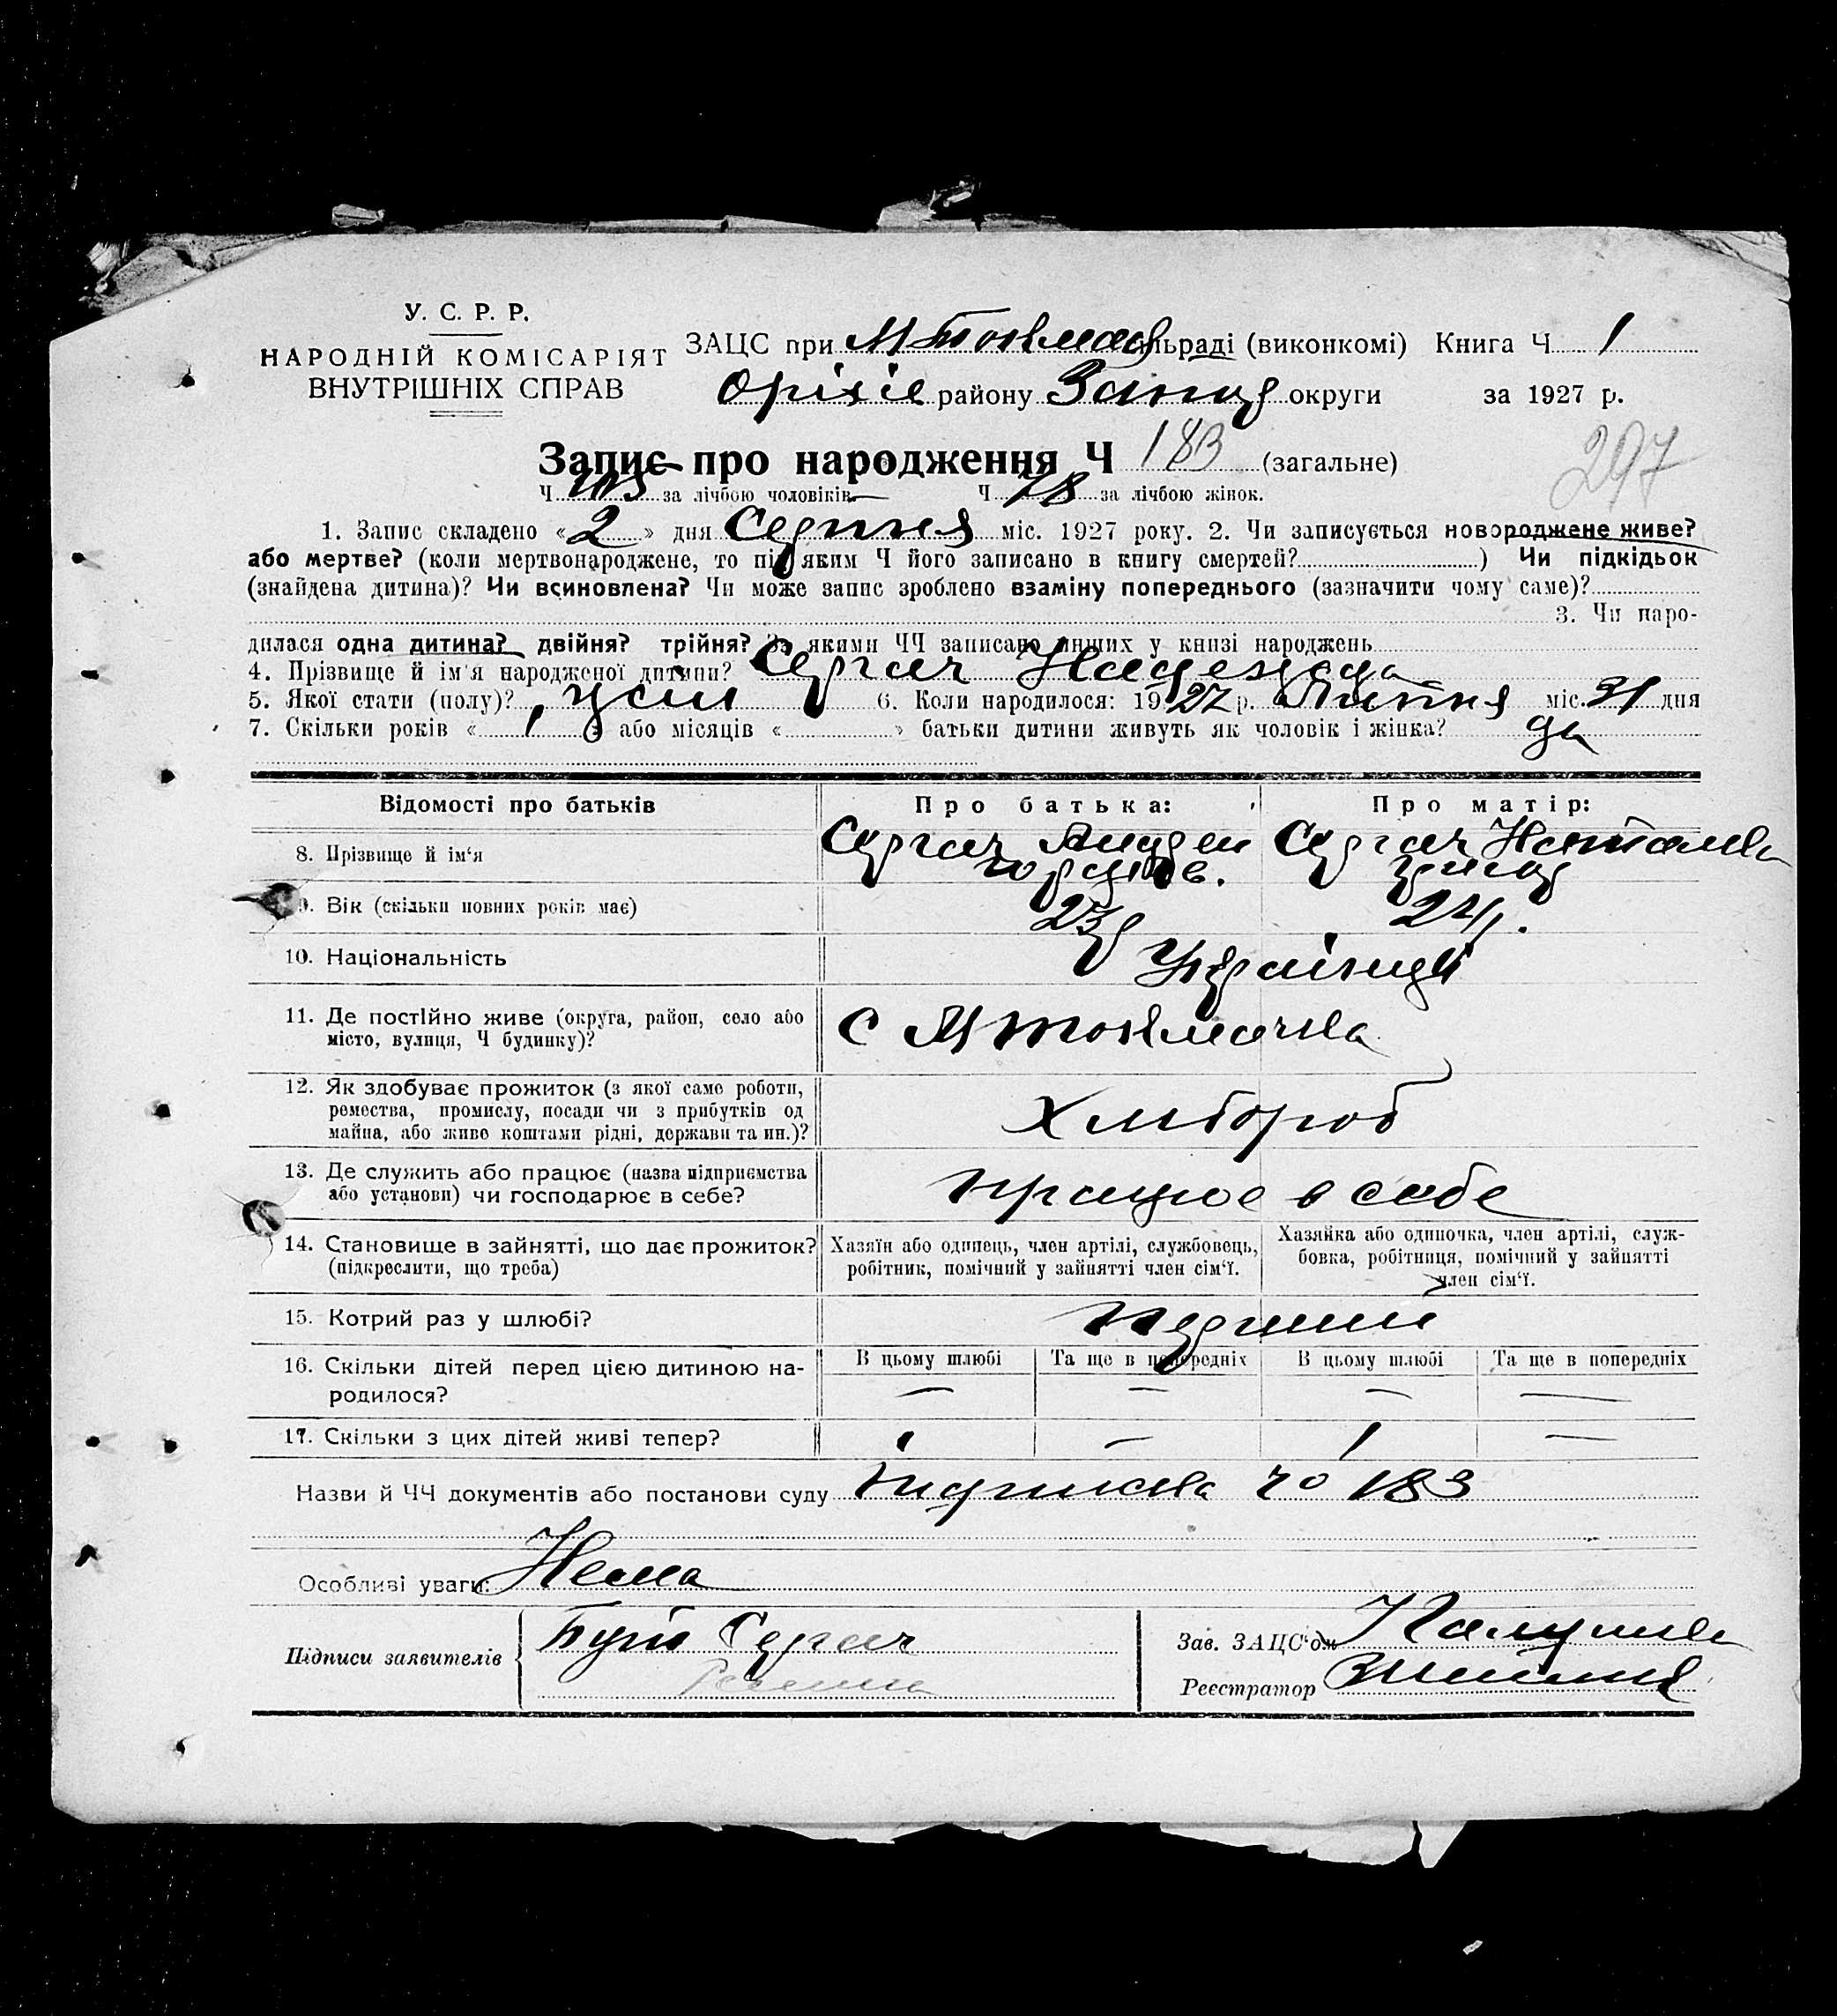 У. С. Р. Р.
НАРОДНІЙ КОМІСАРІЯТ
ВНУТРІШНІХ СПРАВ
ЗАЦС при М Токмац сільраді (виконкомі) Книга Ч 1
Оріхів району Запор округи за 1927 р.
Запис про народження Ч 183 (загальне)
297
Ч за лічбою чоловіків Ч 78 за лічбою жінок.
1. Запис складено «2» дня Серпня міс. 1927 року. 2. Чи записується новороджене живе?
або мертве? (коли мертвонароджене, то під яким Ч його записано в книгу смертей? ) Чи підкідьок
(знайдена дитина)? Чи всиновлена? Чи може запис зроблено взаміну попереднього (зазначити чому саме)?
3. Чи наро-
дилася одна дитина? двійня? трійня? За якими ЧЧ записано инших у книзі народжень
4. Прізвище й ім'я народженої дитини? Сургач Надежда
5. Якої стати (полу)? жін 6. Коли народилося: 1927 р. Липня міс. 31 дня
7. Скільки років « 1 » або місяців « » батьки дитини живуть як чоловік і жінка? да
Відомості про батьків
Про батька:
Про матір:
8. Прізвище й ім'я
Сургач Андреи
Сургач Наталка
9. Вік (скільки повних років має)
23
24
10. Національність
Українці
11. Де постійно живе (округа, район, село або
місто, вулиця, Ч будинку)?
С М Токмачка
12. Як здобуває прожиток (з якої саме роботи,
ремества, промислу, посади чи з прибутків од
майна, або живе коштами рідні, держави та ин.)?
Хлибороб
13. Де служить або працює (назва підприємства
або установи) чи господарює в себе?
працює в себе
14. Становище в зайнятті, що дає прожиток?
(підкреслити, що треба)
Хазяїн або одинець, член артілі, службовець,
робітник, помічний у зайнятті член сім'ї.
Хазяйка або одиночка, член артілі, служ-
бовка, робітниця, помічний у зайнятті
член сім'ї.
15. Котрий раз у шлюбі?
перший
16. Скільки дітей перед цією дитиною на-
родилося?
В цьому шлюбі
Та ще в попередніх
В цьому шлюбі
Та ще в попередніх
— — — —
17. Скільки з цих дітей живі тепер?
1 — 1 —
Назви й ЧЧ документів або постанови суду 183
Особливі уваги: Нема
Підписи заявителів
Сургач
Зав. ЗАЦС'ом
Реєстратор